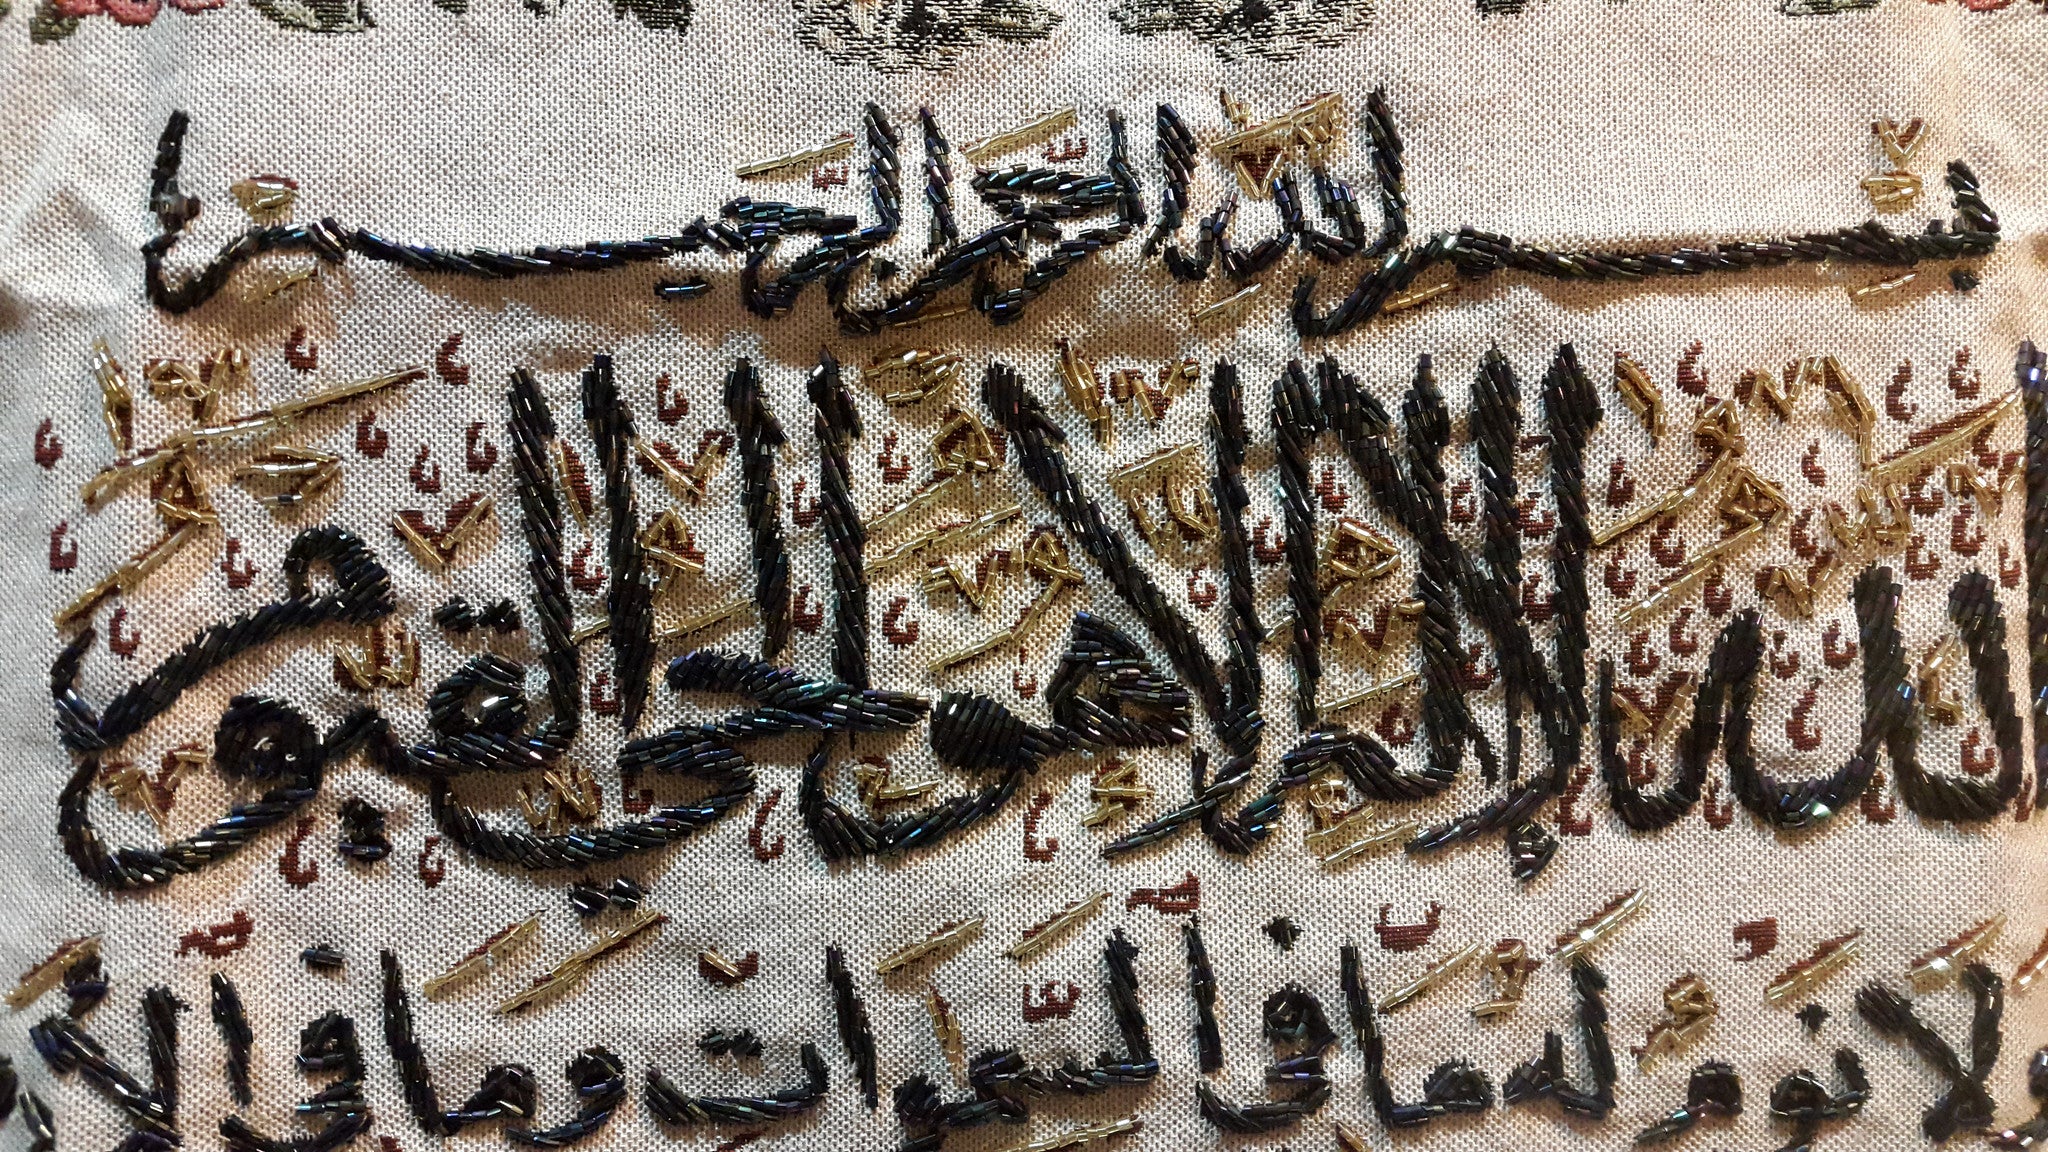 بِسْمِ اللَّهِ الرَّحْمَٰنِ الرَّحِيمِ
اللَّهُ لَا إِلَٰهَ إِلَّا هُوَ الْحَيُّ الْقَيُّومُ
لَا نَوْمٌ لَهُ مَا فِي السَّمَوَاتِ وَمَا فِي